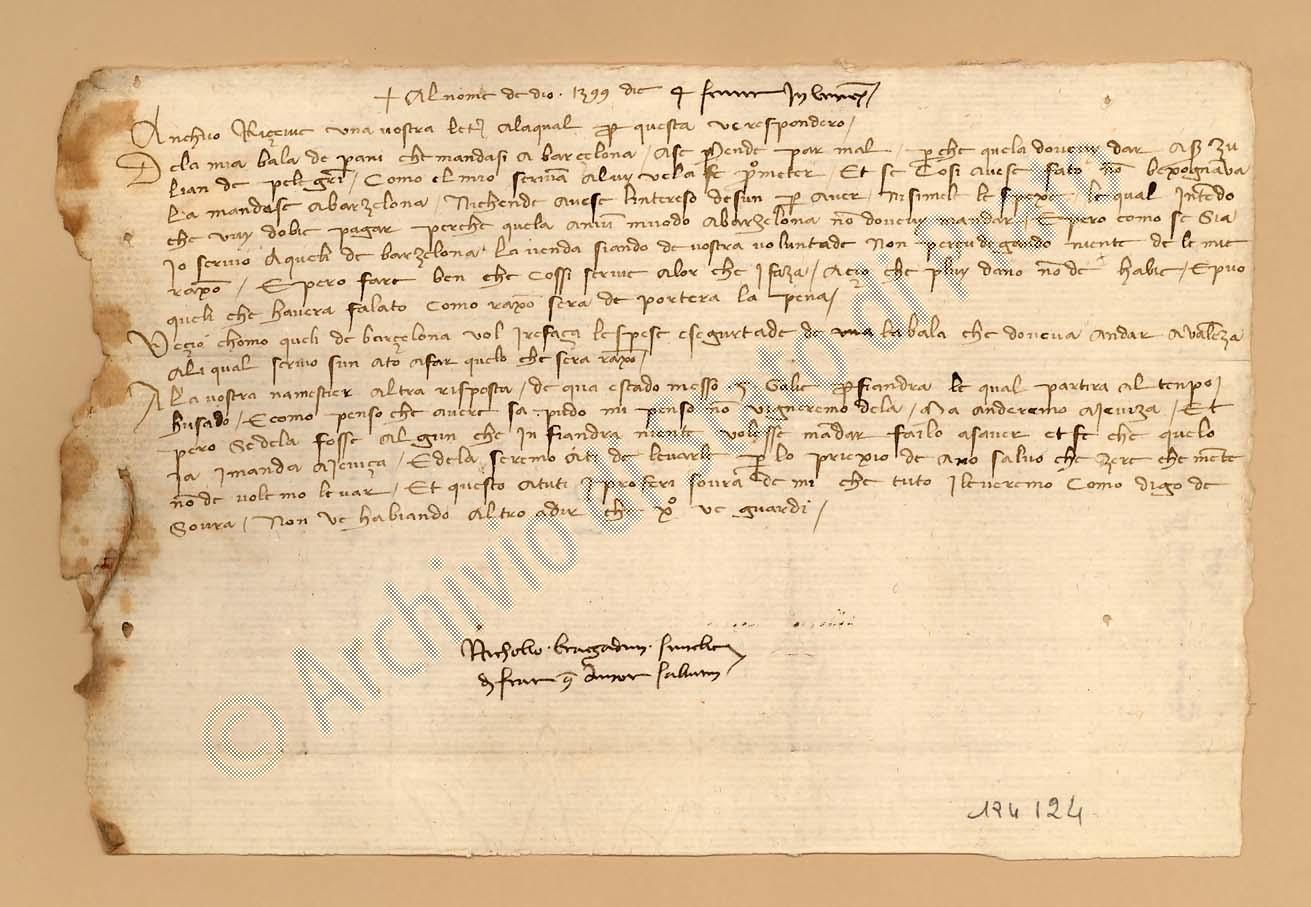 + Al nome de dio · 1399 die 4 fevrer In
Anchuo Riçevie una vostra letr̄ a la qual p̱ questa ve respondero /
Dela mia bala de pani che mandasi a barçelona / a se p̱ende par mal / p̱ che quela doveva dar
lian de / Como el mio scrivā a luy ve la fe p̱meter / Et se Cosi avese fato nō bexognava
la mandase a barzelona / Ni che nde avese lintereso desun p̱ aver / Ni simel le spexe / le qual Intēdo
che vuy dobie pagar perche quela a niū muodo a barzelona nō dovevy mandar / E pero como se sia
Io scrivio A queli de barzelona la venda siando de vostra voluntade Non perçudigando niente de le mie
raxō / E pero fare ben che Cossi scrive a lor che I faza / Açiō che pluy dano nō de habie / E puo
queli che havera falato Como raxō sera de portera la pena /
Veçio chomo queli de barçelona vol I refaça le spese e segurtade de una la bala che doveva andar a valēza
a li qual scrivo sun ato a far quelo che sera raxō /
A la vostra na mestier altra risposta / de qua e stado messo 5 Galie p̱ fiandra le qual partira al tenpo
husado / E como penso che avere sapudo mi penso nō vigneremo de la / Ma anderemo a Ieviza / Et
pero se de la fosse algun che In fiandra niente volesse mādar failo asaver et fe che quelo
Ia I manda a Ieviça / E de la seremo ati de levarle p̱ lo priexio de ano salvo che zere che niēte
nō de volemo levar / Et questo a tuti I proferi sovra de mi che tuto I leveremo Como digo de
Sovra / Non ve habiando altro a dir che xp̄o ve guardi /
Nicholo · bragadin ·
salutem
© Archivio di Stato di Prato
124 124